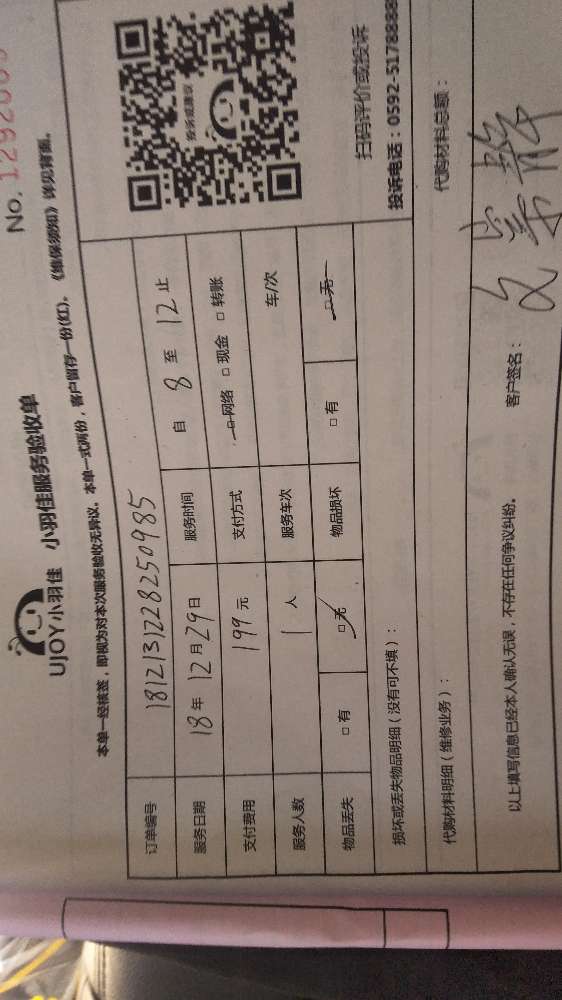 No. 129200
UJOY小羽佳 小羽佳服务验收单
本单一经核签，即视为对本次服务验收无异议。本单一式两份，客户留存一份(红)。《维保须知》详见背面。
订单编号 181213122825 0985
服务日期 18年12月29日 服务时间 自 8 至 12 止
支付费用 199 元 支付方式 □网络 □现金 □转账
服务人数 1 人 服务车次 车/次
物品丢失 □有 □无 物品损坏 □有 □无
损坏或丢失物品明细（没有可不填）：
代购材料明细（维修业务）： 代购材料总额：
以上填写信息已经本人确认无误，不存在任何争议纠纷。 客户签名：
扫码评价或投诉
投诉电话：0592-5178888